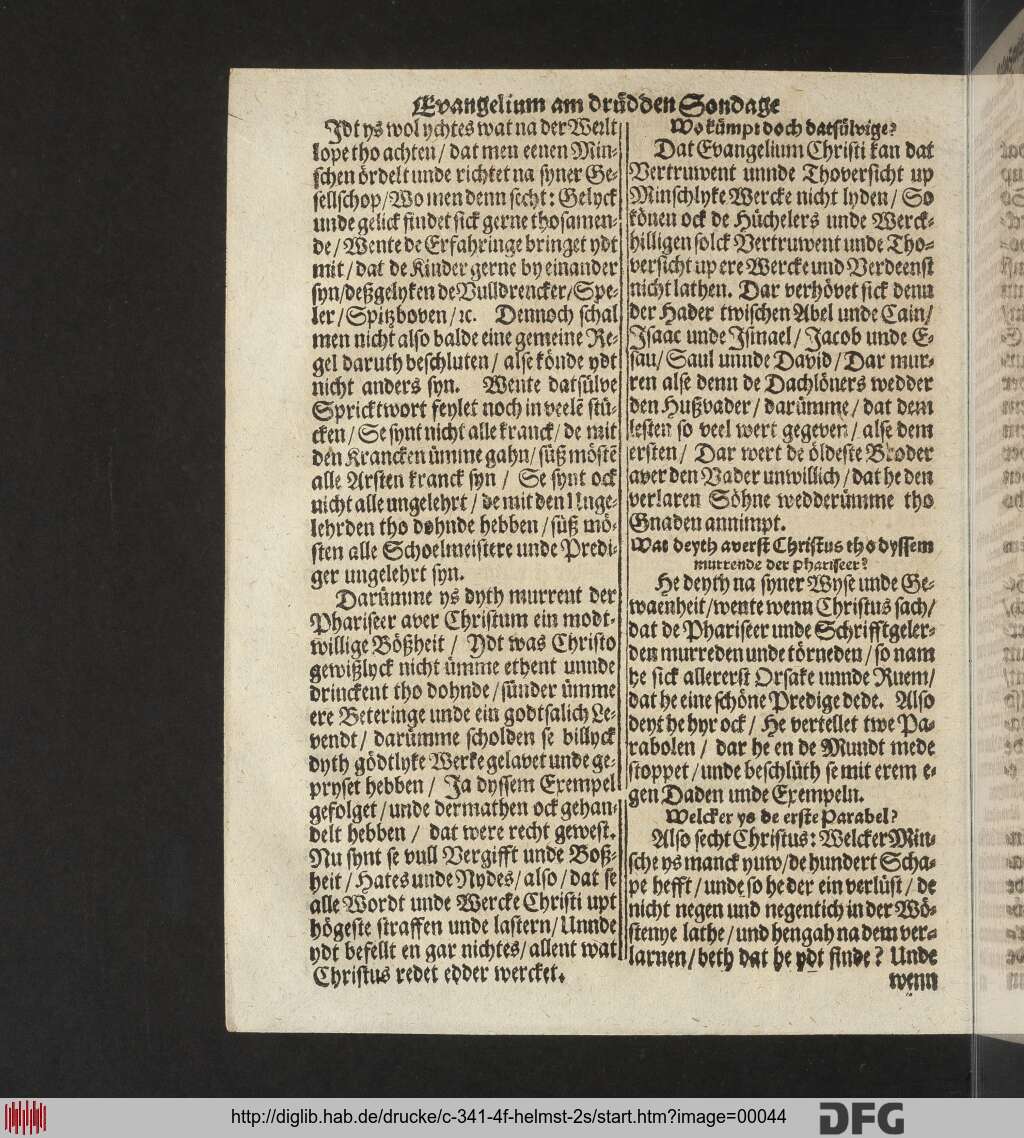 Evangelium am drüdden Sondage
Jdt ys wol ychtes wat na der Werlt
lope tho achten / dat men eenen Min-
schen ördelt unde richtet na syner Ge-
sellschop / Wo men denn secht: Gelyck
unde gelick findet sick gerne thosamen-
de / Wente de Erfahringe bringet ydt
mit / dat de Kinder gerne by einander
syn / deßgelyken de Vulldrencker / Spe-
ler / Spitzboven / ꝛc. Dennoch schal
men nicht also balde eine gemeine Re-
gel daruth beschluten / alse könde ydt
nicht anders syn. Wente datsülve
Spricktwort feylet noch in veelē stü-
cken / Se synt nicht alle kranck / de mit
den Krancken ümme gahn / süß möstē
alle Arsten kranck syn / Se synt ock
nicht alle ungelehrt / de mit den Unge-
lehrden tho dohnde hebben / süß mö-
sten alle Schoelmeistere unde Predi-
ger ungelehrt syn.
Darümme ys dyth murrent der
Phariseer aver Christum ein modt-
willige Bößheit / Ydt was Christo
gewißlyck nicht ümme ethent unnde
drinckent tho dohnde / sünder ümme
ere Beteringe unde ein godtsalich Le-
vendt / darümme scholden se billyck
dyth gödtlyke Werke gelavet unde ge-
pryset hebben / Ja dyssem Exempel
gefolget / unde dermathen ock gehan-
delt hebben / dat were recht gewest.
Nu synt se vull Vergifft unde Boß-
heit / Hates unde Nydes / also / dat se
alle Wordt unde Wercke Christi upt
högeste straffen unde lastern / Unnde
ydt befellt en gar nichtes / allent wat
Christus redet edder wercket.
Wo kümpt doch datsülvige?
Dat Evangelium Christi kan dat
Vertruwent unnde Thoversicht up
Minschlyke Wercke nicht lyden / So
könen ock de Hüchelers unde Werck-
hilligen solck Vertruwent unde Tho-
versicht up ere Wercke und Verdeenst
nicht lathen. Dar verhövet sick denn
der Hader twischen Abel unde Cain /
Isaac unde Ismael / Jacob unde E-
sau / Saul unnde David / Dar mur-
ren alse denn de Dachlöners wedder
den Hußvader / darümme / dat dem
lesten so veel wert gegeven / alse dem
ersten / Dar wert de öldeste Broder
aver den Vader unwillich / dat he den
verlaren Söhne wedderümme tho
Gnaden annimpt.
Wat deyth averst Christus tho dyssem
murrende der Phariseer?
He deyth na syner Wyse unde Ge-
waenheit / wente wenn Christus sach /
dat de Phariseer unde Schrifftgeler-
den murreden unde törneden / so nam
he sick allererst Orsake unnde Ruem /
dat he eine schöne Predige dede. Also
deyt he hyr ock / He vertellet twe Pa-
rabolen / dar he en de Mundt mede
stoppet / unde beschlüth se mit erem e-
gen Daden unde Exempeln.
Welcker ys de erste Parabel?
Also secht Christus: Welcker Min-
sche ys manck yuw / de hundert Scha-
pe hefft / unde so he der ein verlüst / de
nicht negen und negentich in der Wö-
stenye lathe / und hengah na dem ver-
larnen / beth dat he ydt finde? Unde
wenn
http://diglib.hab.de/drucke/c-341-4f-helmst-2s/start.htm?image=00044
DFG